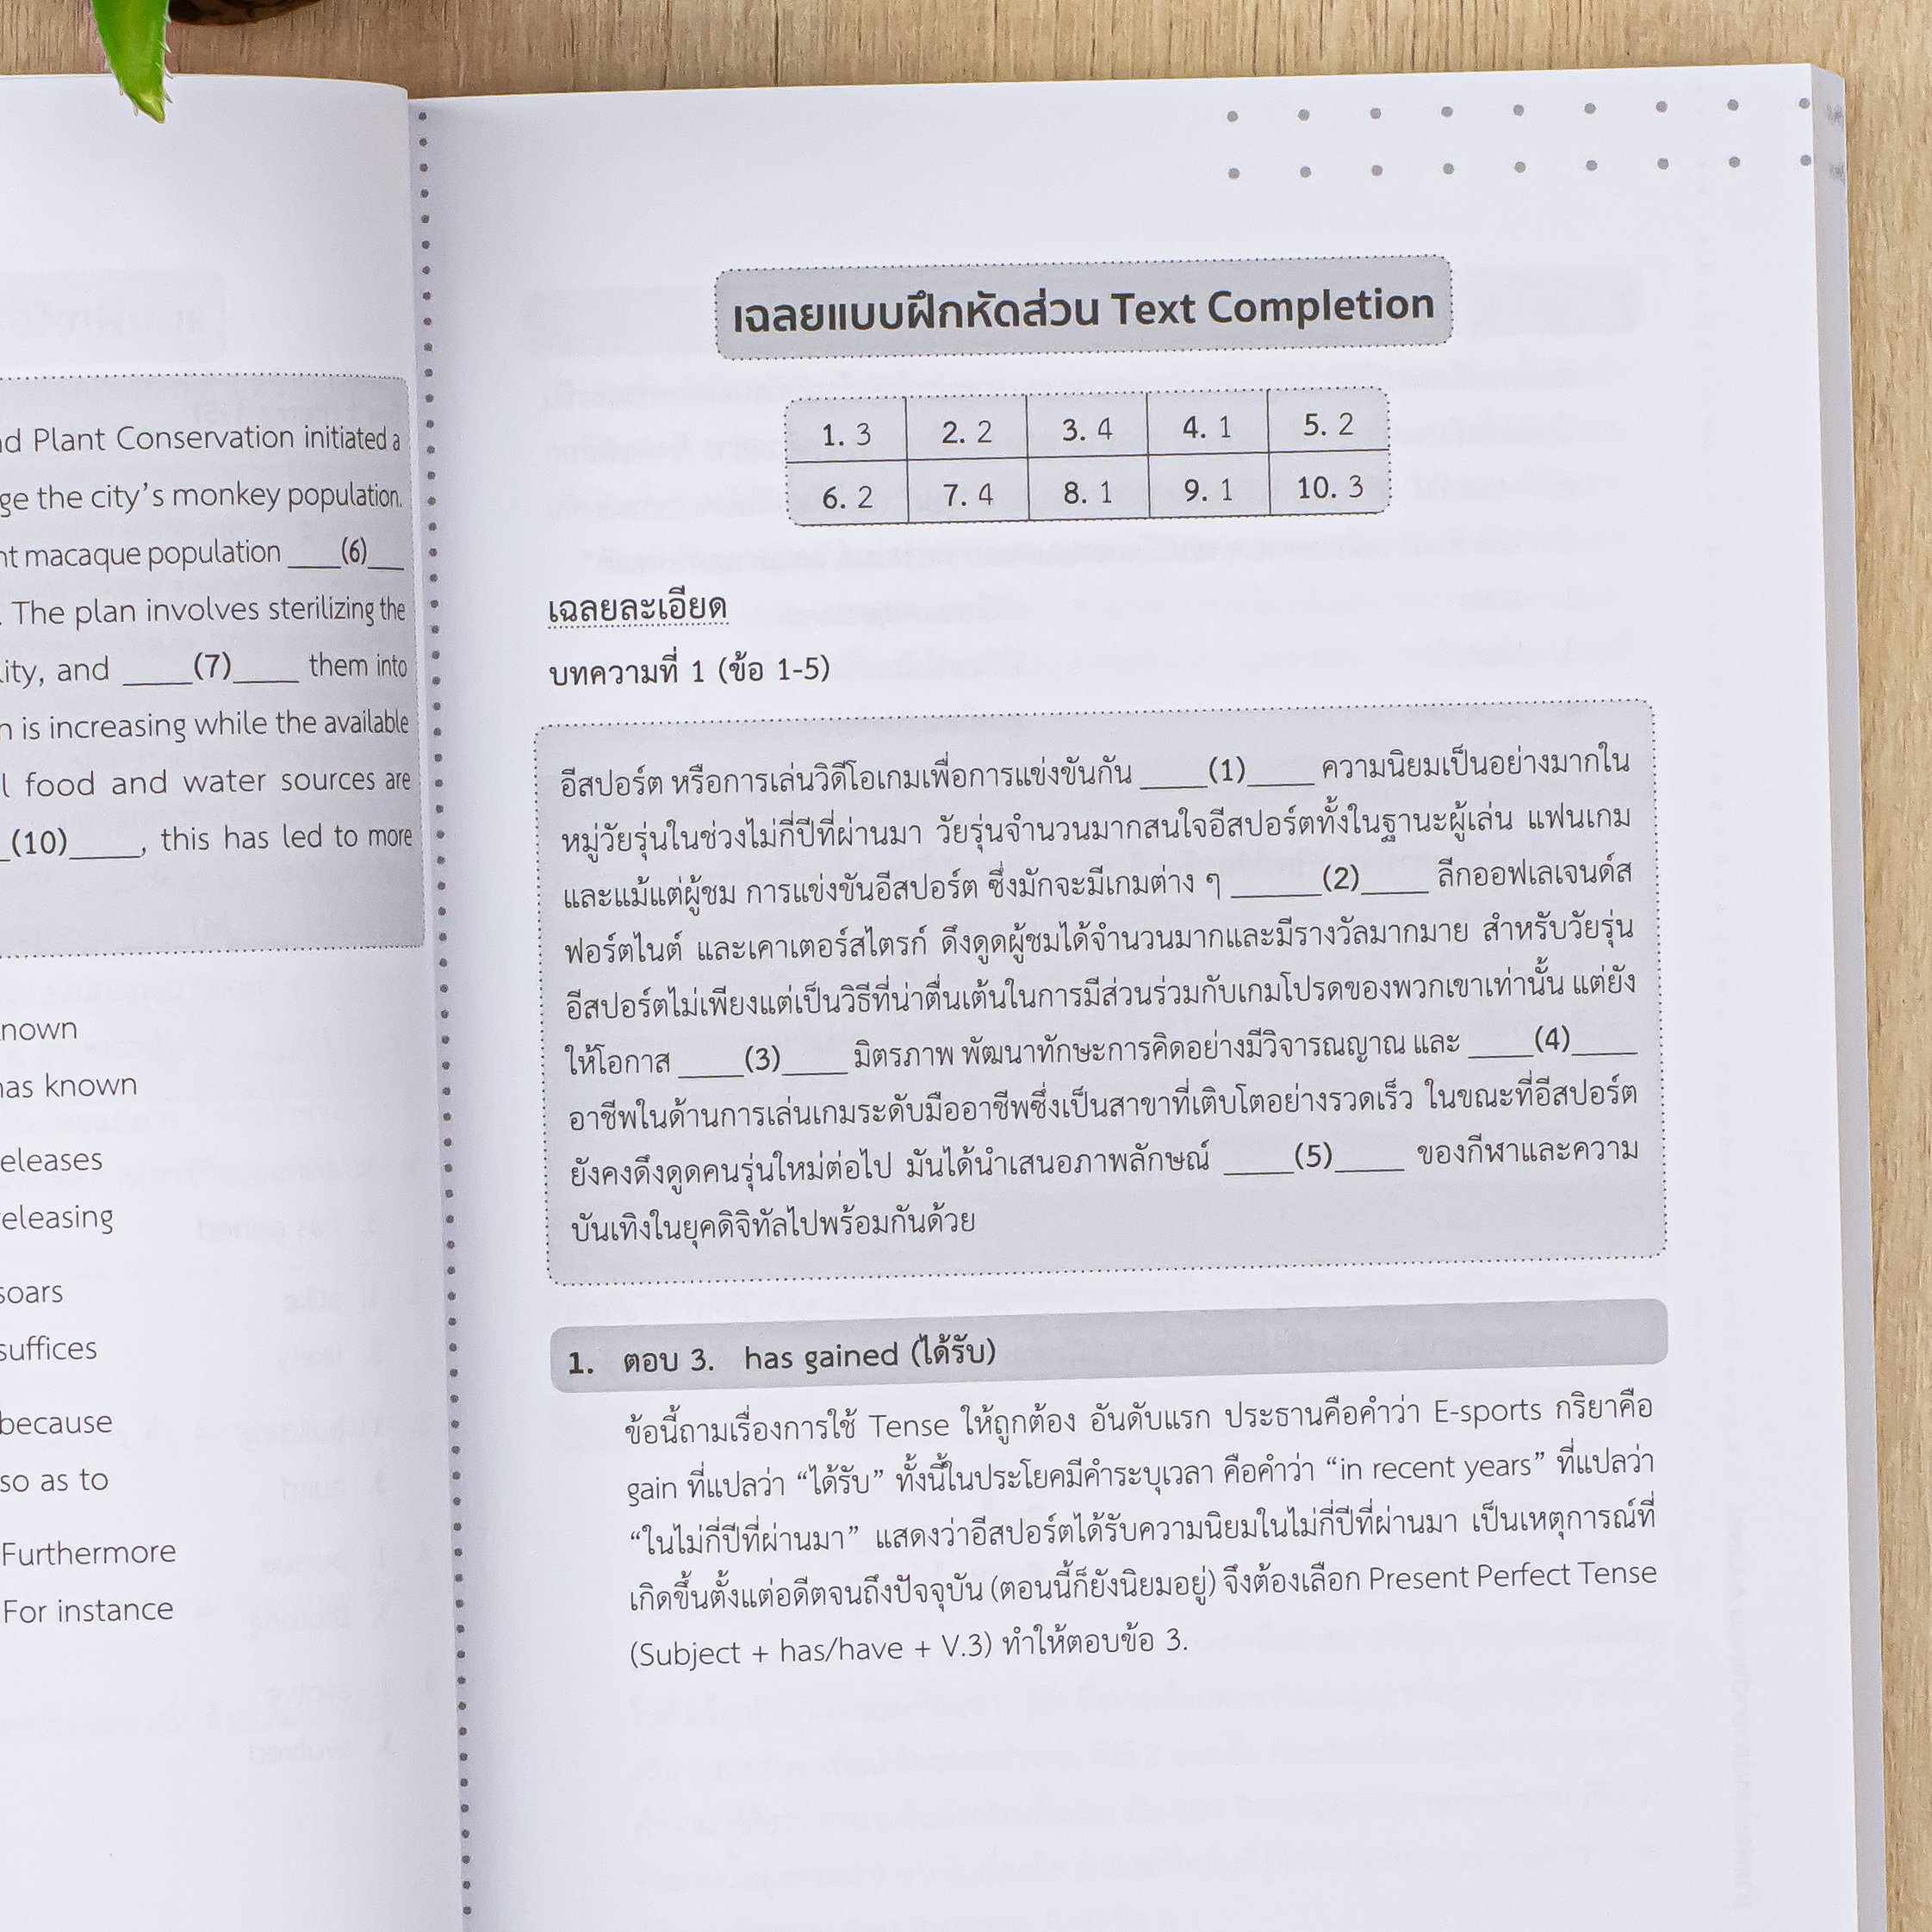 nd Plant Conservation initiated a
ge the city's monkey population.
nt macaque population ____(6)___
. The plan involves sterilizing the
lity, and ____(7)____ them into
n is increasing while the available
l food and water sources are
_(10)____, this has led to more
nown
has known
eleases
eleasing
soars
suffices
because
so as to
Furthermore
For instance
เฉลยแบบฝึกหัดส่วน Text Completion
1. 3 2. 2 3. 4 4. 1 5. 2
6. 2 7. 4 8. 1 9. 1 10. 3
เฉลยละเอียด
บทความที่ 1 (ข้อ 1-5)
อีสปอร์ต หรือการเล่นวิดีโอเกมเพื่อการแข่งขันกัน ____(1)____ ความนิยมเป็นอย่างมากใน
หมู่วัยรุ่นในช่วงไม่กี่ปีที่ผ่านมา วัยรุ่นจำนวนมากสนใจอีสปอร์ตทั้งในฐานะผู้เล่น แฟนเกม
และแม้แต่ผู้ชม การแข่งขันอีสปอร์ต ซึ่งมักจะมีเกมต่าง ๆ _____(2)____ ลีกออฟเลเจนด์ส
ฟอร์ตไนต์ และเคาเตอร์สไตรก์ ดึงดูดผู้ชมได้จำนวนมากและมีรางวัลมากมาย สำหรับวัยรุ่น
อีสปอร์ตไม่เพียงแต่เป็นวิธีที่น่าตื่นเต้นในการมีส่วนร่วมกับเกมโปรดของพวกเขาเท่านั้น แต่ยัง
ให้โอกาส ____(3)____ มิตรภาพ พัฒนาทักษะการคิดอย่างมีวิจารณญาณ และ ____(4)____
อาชีพในด้านการเล่นเกมระดับมืออาชีพซึ่งเป็นสาขาที่เติบโตอย่างรวดเร็ว ในขณะที่อีสปอร์ต
ยังคงดึงดูดคนรุ่นใหม่ต่อไป มันได้นำเสนอภาพลักษณ์ ____(5)____ ของกีฬาและความ
บันเทิงในยุคดิจิทัลไปพร้อมกันด้วย
1. ตอบ 3. has gained (ได้รับ)
ข้อนี้ถามเรื่องการใช้ Tense ให้ถูกต้อง อันดับแรก ประธานคือคำว่า E-sports กริยาคือ
gain ที่แปลว่า “ได้รับ” ทั้งนี้ในประโยคมีคำระบุเวลา คือคำว่า “in recent years” ที่แปลว่า
“ในไม่กี่ปีที่ผ่านมา” แสดงว่าอีสปอร์ตได้รับความนิยมในไม่กี่ปีที่ผ่านมา เป็นเหตุการณ์ที่
เกิดขึ้นตั้งแต่อดีตจนถึงปัจจุบัน (ตอนนี้ก็ยังนิยมอยู่) จึงต้องเลือก Present Perfect Tense
(Subject + has/have + V.3) ทำให้ตอบข้อ 3.